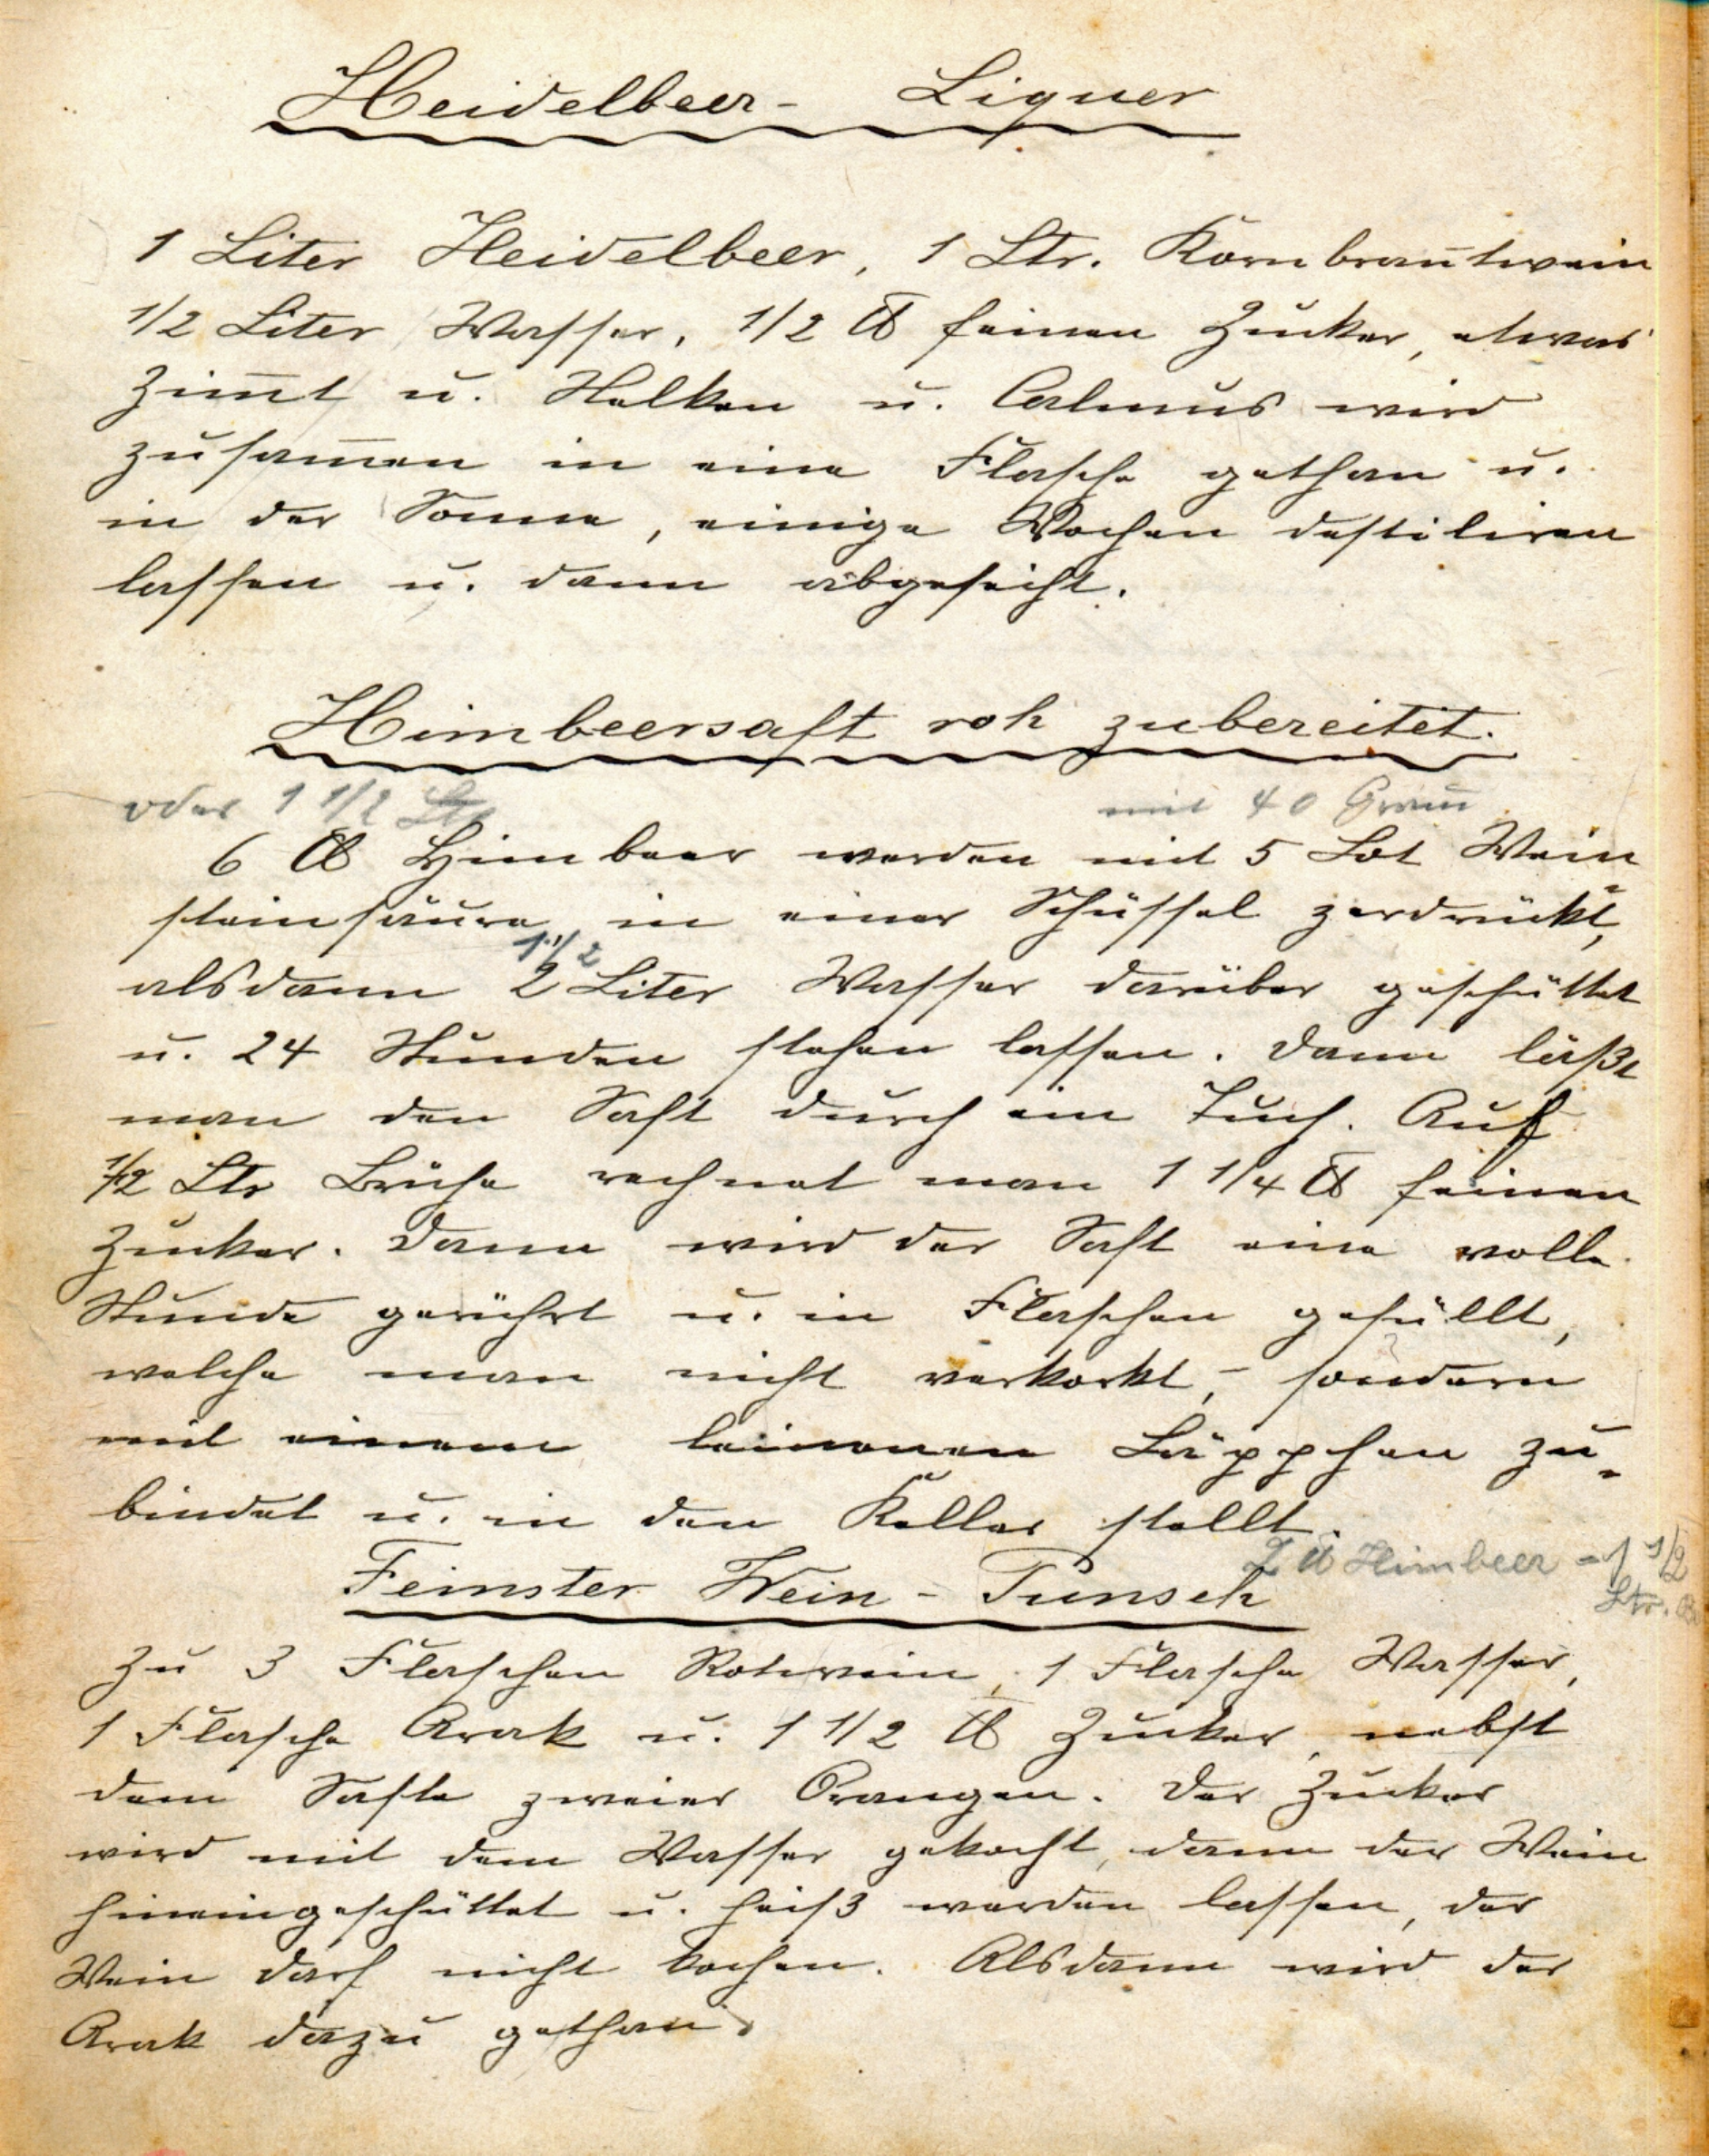 Heidelbeer- Liquer
1 Liter Heidelbeer, 1 Ltr. Kornbrantwein
1/2 Liter Wasser, 1/2 ℔ feinen Zucker, etwas
Zim̅t u. Nelken u. Calmus wird
zusam̅en in eine Flasche gethan u.
in der Sonne, einige Wochen destiliren
lassen u. dann abgeseiht.
Himbeersaft roh zubereitet.
oder 1 1/2 mit 40 Gram̅
6 ℔ Himbeer werden mit 5 Lot Wein
steinsäure in einer Schüssel zerdrückt,
1 1/2
alsdann 2 Liter Wasser darüber geschüttet
u. 24 Stunden stehen lassen. Dann läßt
man den Saft durch ein Tuch. Auf
1/2 Ltr Brühe rechnet man 1 1/4 ℔ feinen
Zucker. Dann wird der Saft eine volle
Stunde gerührt u. in Flaschen gefüllt,
welche man nicht verkorkt, - sondern
mit einem leinenen Läppchen zu-
bindet u. in den Keller stellt.
2 ℔ Himbeer = 1 1/2
Ltr.
Feinster Wein - Punsch
Zu 3 Flaschen Rotwein, 1 Flasche Wasser,
1 Flasche Arak u. 1 1/2 ℔ Zucker, nebst
dem Safte zweier Orangen. Der Zucker
wird mit dem Wasser gekocht, dann der Wein
hineingeschüttet u. heiß werden lassen, der
Wein darf nicht kochen. Alsdann wird der
Arak dazu gethan.